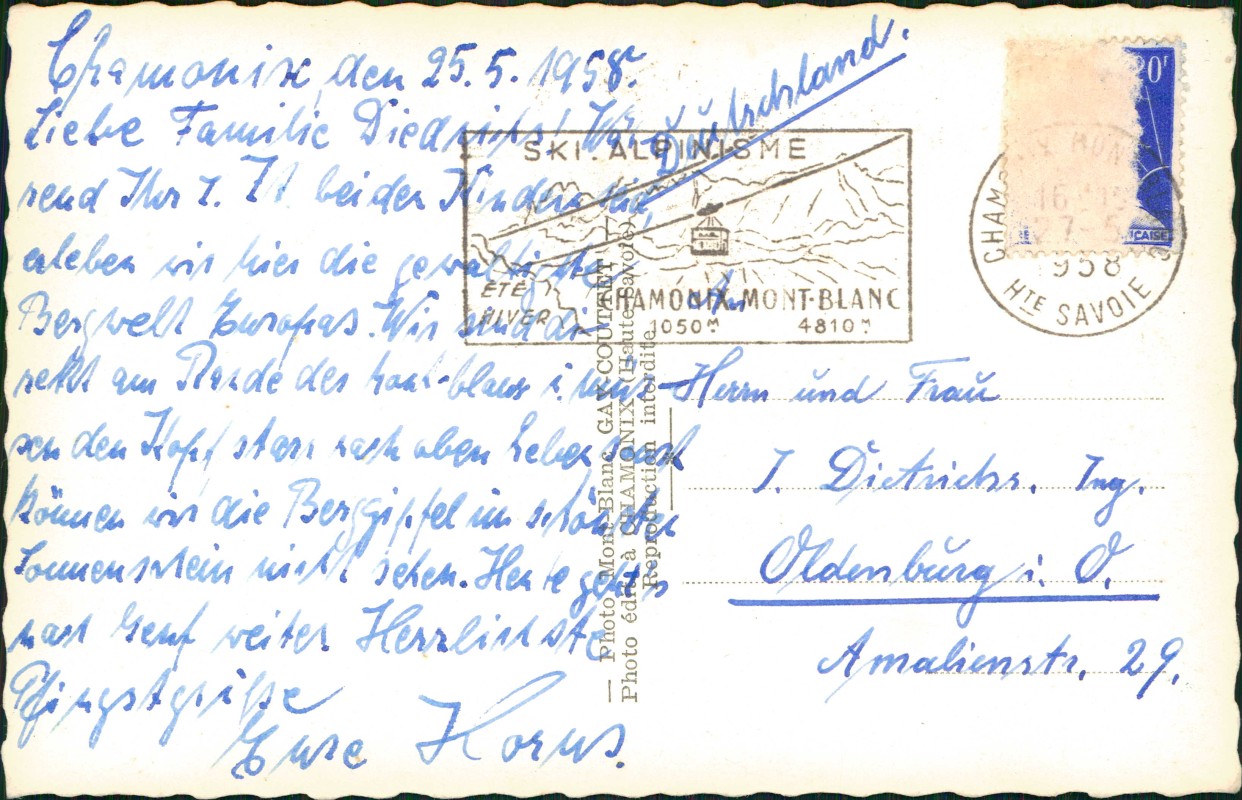 Chamonix, den 25.5.1958.
Liebe Familie Diedrichs! Wäh
rend Ihr z. Zt bei den Kindern seid,
erleben wir hier die gewaltigste
Bergwelt Europas. Wir sind di-
rekt am Rande des Mont-blanc u. müs-
sen den Kopf starr nach oben heben, noch
können wir die Berggipfel im schönsten
Sonnenschein nicht sehen. Heute geht's
nach Genf weiter Herzlichste
Pfingstgrüße
Eure Horns.
Deutschland.
SKI. ALPINISME
ÉTÉ
HIVER
CHAMONIX MONT-BLANC
1050M 4810M
20f
CHAMONIX MONT
16H15
27-5
1958
HTE SAVOIE
ÇAISE
— Photo Mont Blanc GAY-COUTTET —
Photo édité à CHAMONIX (Haute-Savoie)
Reproduction interdite
An
Herrn und Frau
I. Dietrichs. Ing.
Oldenburg i. O.
Amalienstr. 29.